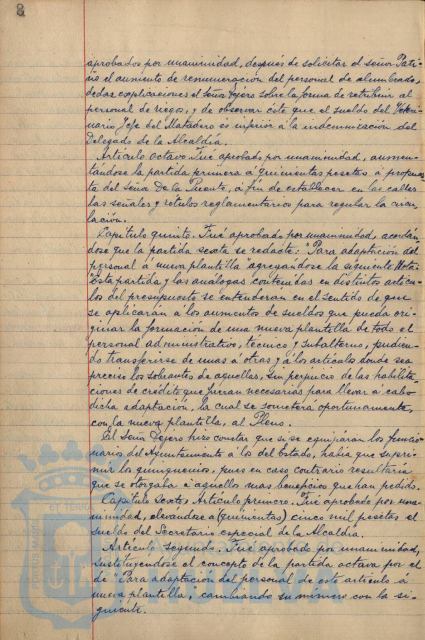 8
aprobados por unanimidad, después de solicitar el señor Pati-
ño el aumento de remuneración del personal de alumbrado,
dedar explicaciones el señor Tejero sobre la forma de retribuir al
personal de riegos, y de observar éste que el sueldo del Veteri-
nario Jefe del Matadero es inferior a la indemnización del
Delegado de la Alcaldía.
Artículo octavo. Fué aprobado por unanimidad, aumen-
tándose la partida primera a quinientas pesetas á propues-
ta del señor De la Puente, á fin de establecer en las calles
las señales y rótulos reglamentarios para regular la circu-
lación.
Capítulo quinto. Fué aprobado por unanimidad, acordán-
dose que la partida sexta se redacte: "Para adaptación del
personal á nueva plantilla" agregándose la siguiente Nota:
"Esta partida y las análogas contenidas en distintos artícu-
los del presupuesto se entenderán en el sentido de que
se aplicarán á los aumentos de sueldos que pueda ori-
ginar la formación de una nueva plantilla de todo el
personal administrativo, técnico y subalterno, pudien-
do transferirse de unas á otras y á los artículos donde sea
preciso los sobrantes de aquellas, sin perjuicio de las habilita-
ciones de crédito que fueran necesarias para llevar á cabo
dicha adaptación, la cual se someterá oportunamente,
con la nueva plantilla, al Pleno.
El Señor Tejero hizo constar que si se equiparan los funcio-
narios del Ayuntamiento a los del Estado, había que supri-
mir los quinquenios, pues en caso contrario resultaría
que se otorgaba á aquellos mas beneficios que han pedido.
Capítulo Sexto. Artículo primero. Fué aprobado por una-
nimidad, elevandose a (quinientas) cinco mil pesetas el
sueldo del Secretario especial de la Alcaldía.
Artículo segundo. Fué aprobado por unanimidad,
sustituyéndose el concepto de la partida octava por el
de "Para adaptación del personal de este artículo á
nueva plantilla", cambiando su número con la si-
guiente.